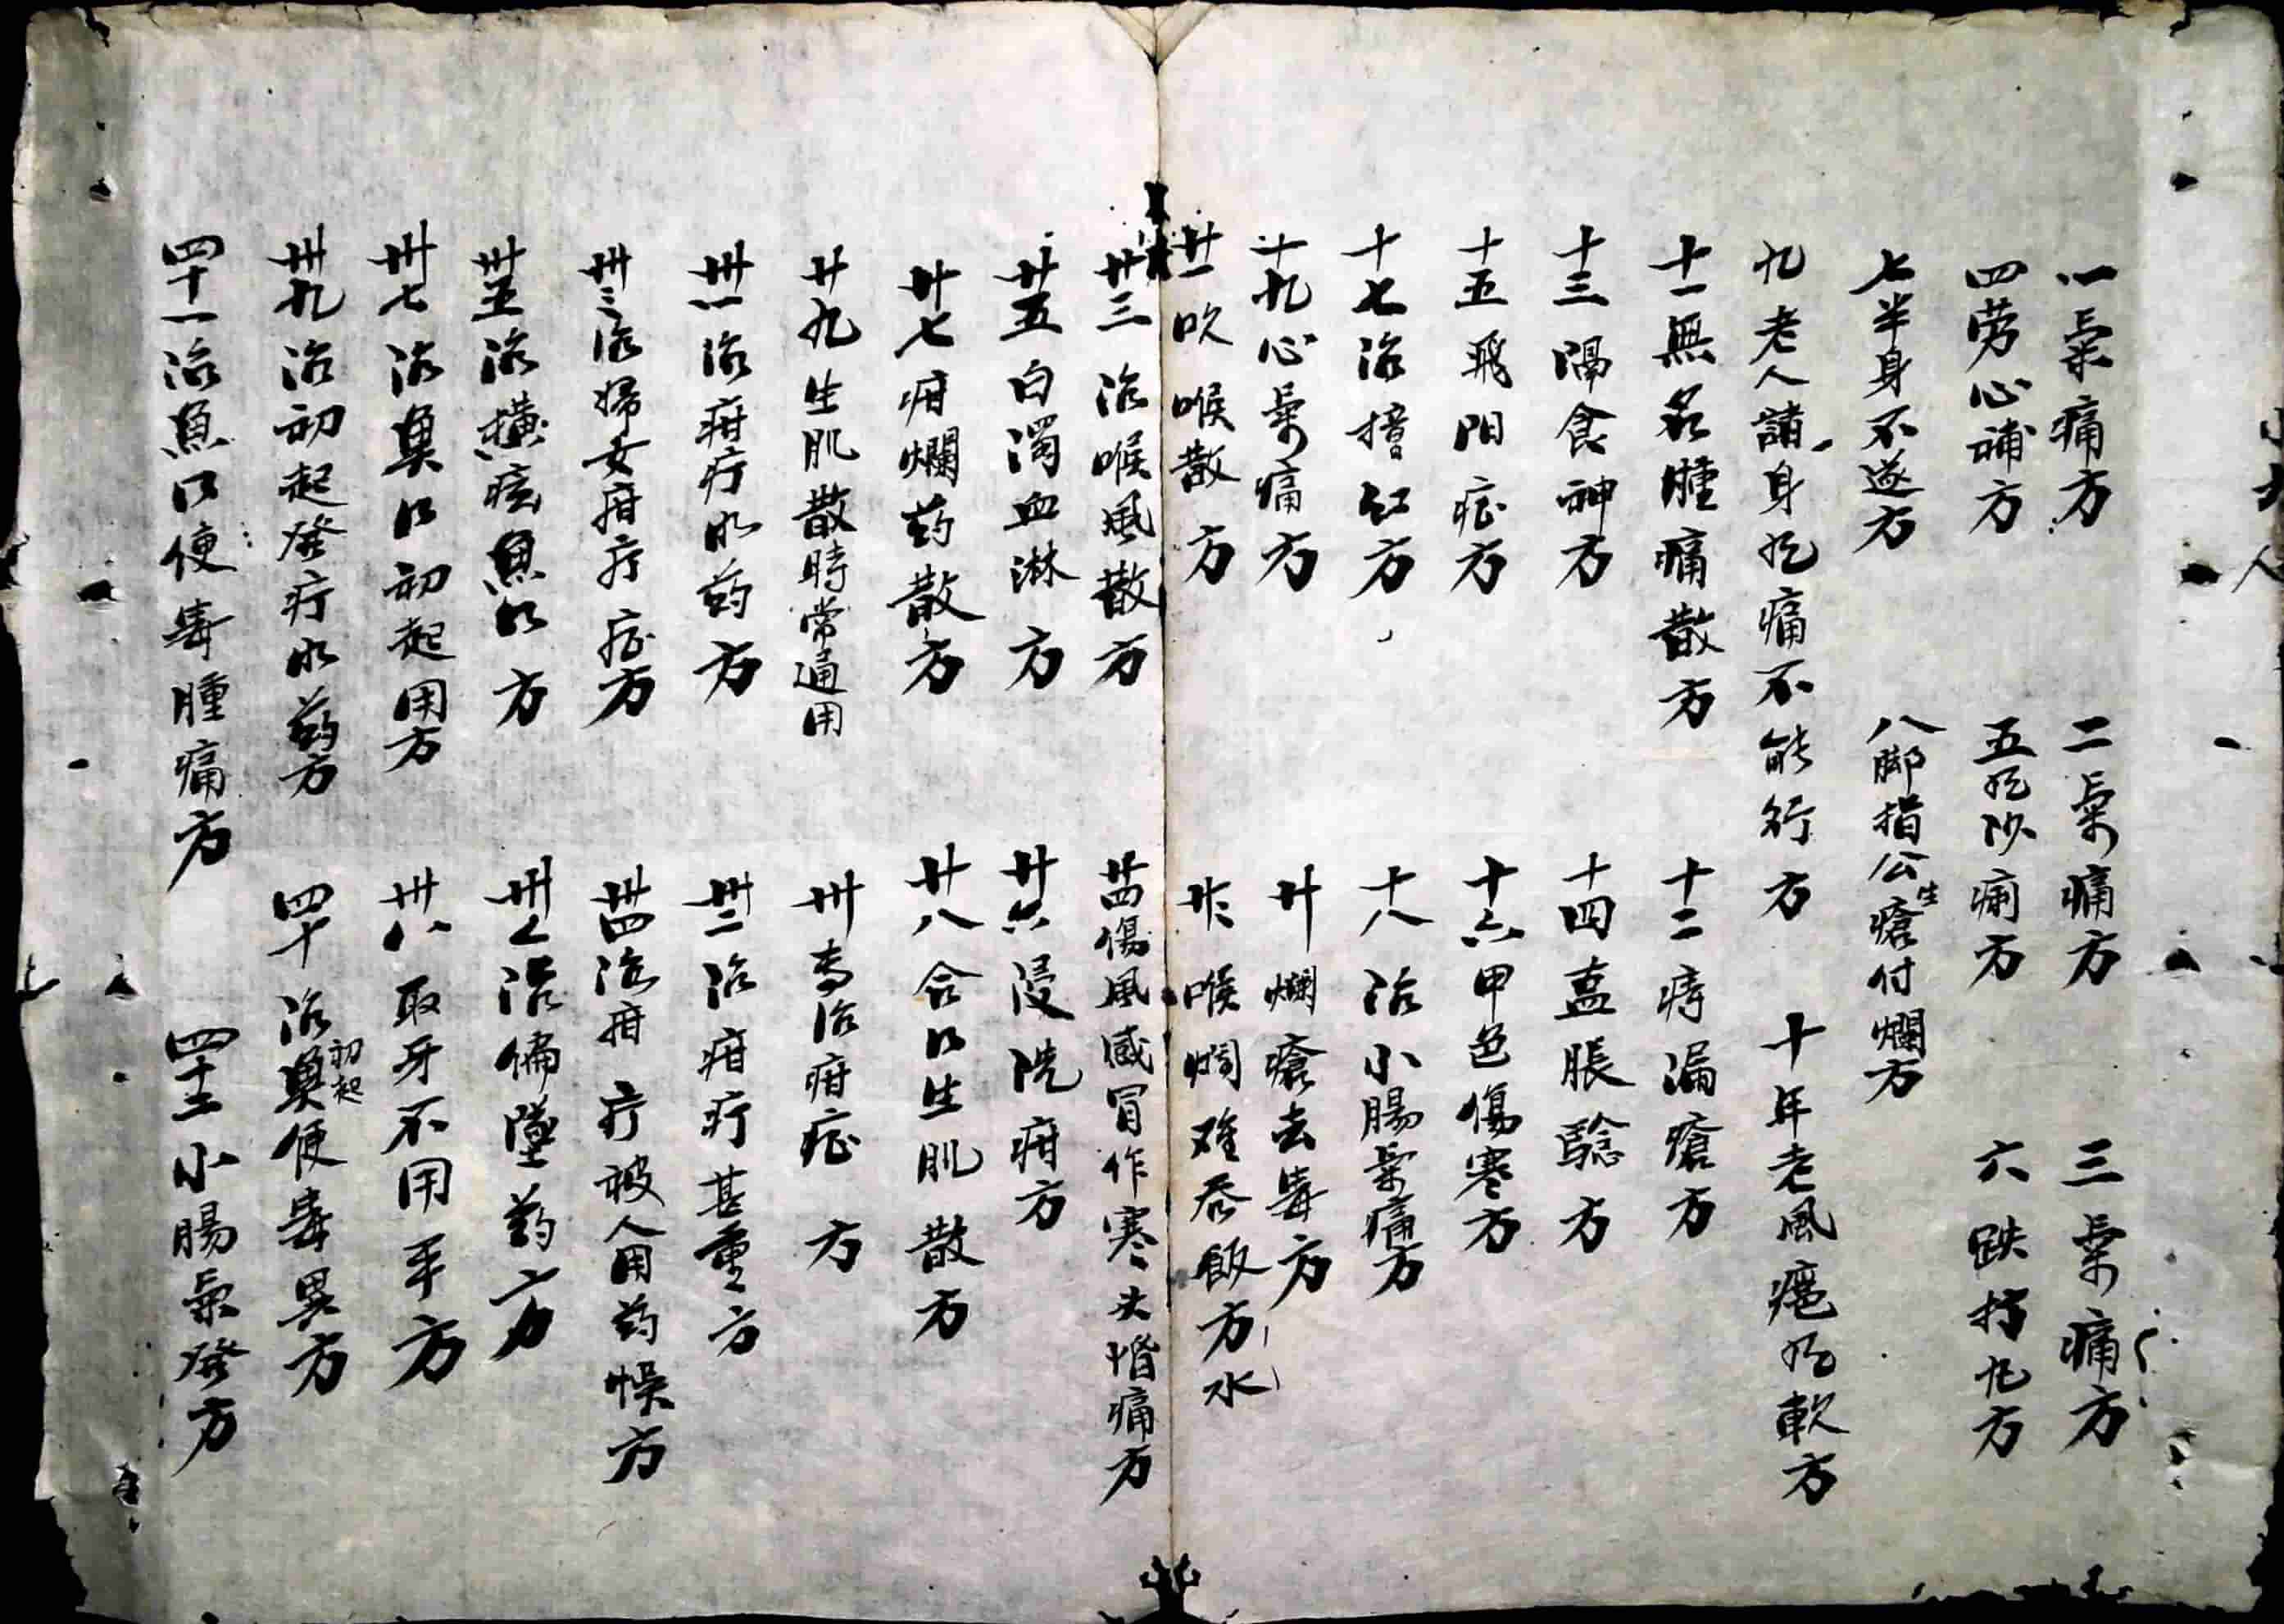 一氣痛方 二氣痛方 三氣痛方
四劳心補方 五肚沙痢方 六跌打九方
七半身不遂方 八脚指公生瘡付爛方
九老人諸身疼痛不能行方 十年老風癱軟方
十一無名腫痛散方 十二痔漏瘡方
十三隔食神方 十四蠱脹方
十五飛阳症方 十六甲色傷寒方
十七治红方 十八治小腸氣痛方
十九心氣痛方 廿爛瘡去毒方
廿一吹喉散方 廿二喉爛难吞飯方水
廿三治喉風散方 廿四傷風感冒作寒头惛痛方
廿五白濁血淋方 廿六浸洗疳方
廿七疳爛药散方 廿八合口生肌散方
廿九生肌散時常通用 卅专治疳症方
卅一治疳疔水药方 卅二治疳疔甚重方
卅三治婦女疳疔症方 卅四治疳疔被人用药悞方
卅五治横痃魚口方 卅六治偏墜药方
卅七治魚口初起用方 卅八取牙不用手方
卅九治初起發疔水药方 四十治魚初起便毒異方
四十一治魚口便毒腫痛方 四十二小腸氣發方